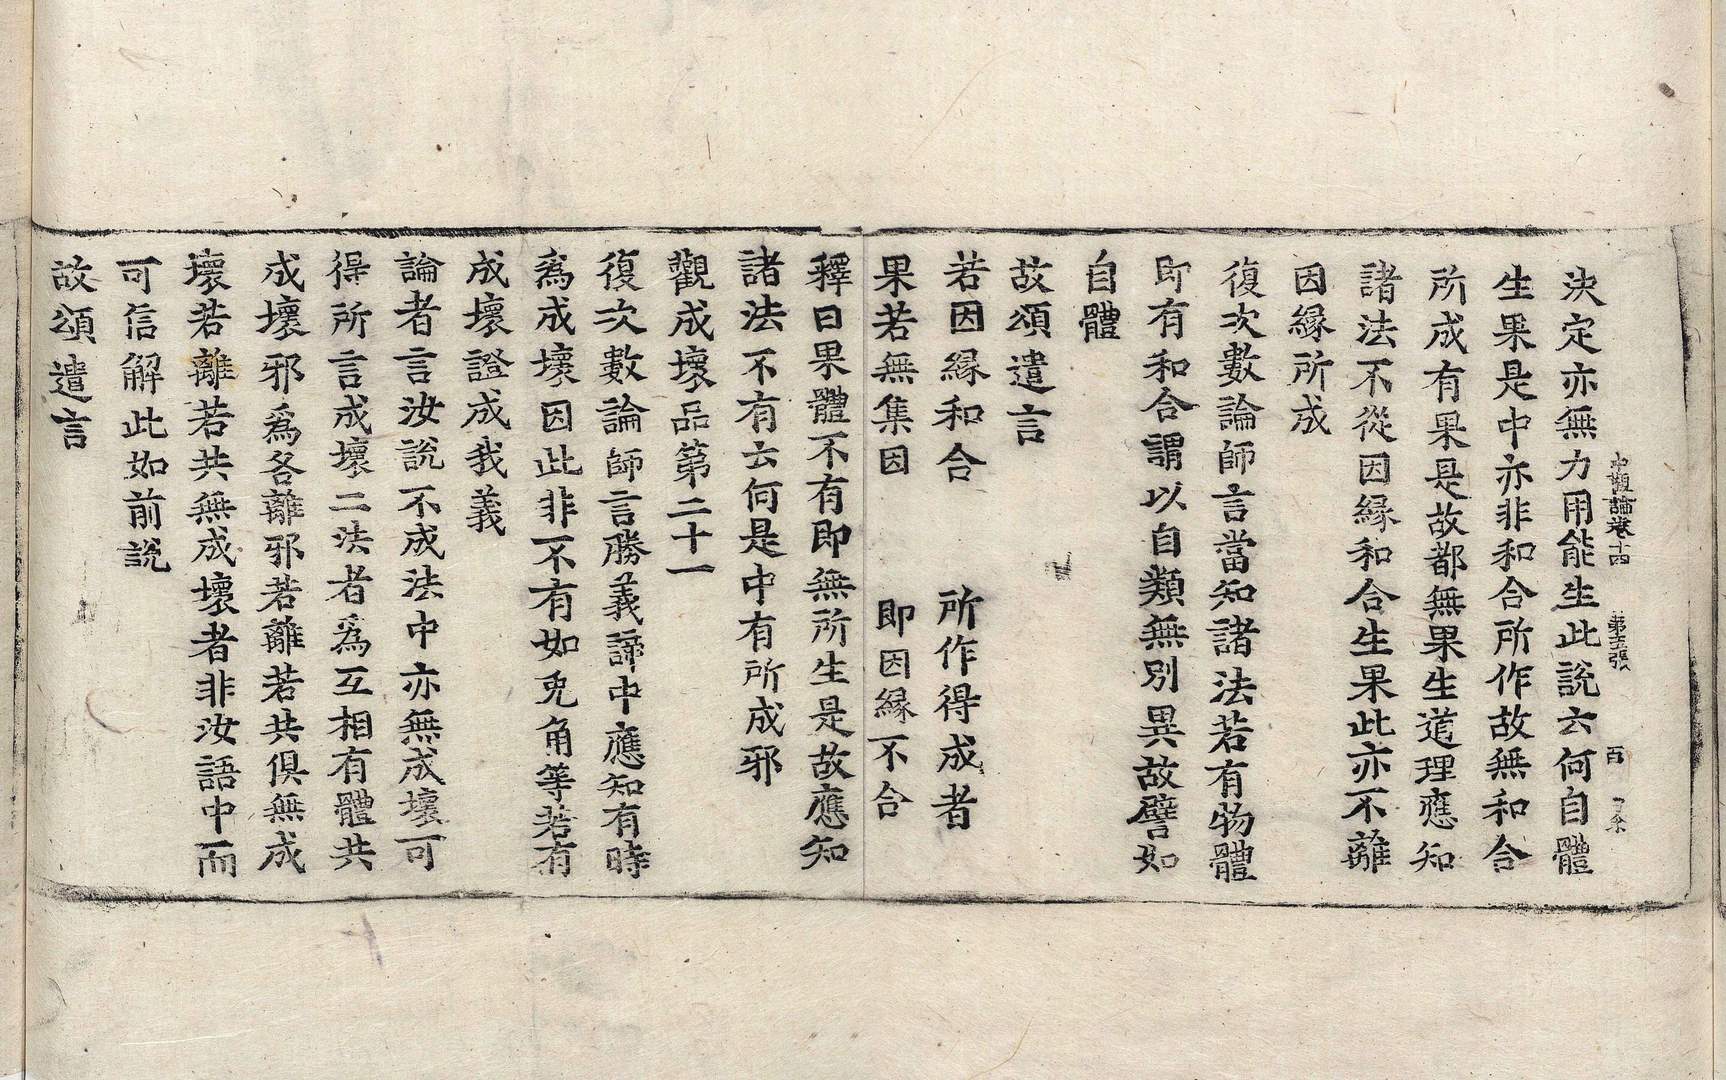 中觀論卷十四 第五張 百
決定亦無力用能生此說云何自體
生果是中亦非和合所作故無和合
所成有果是故都無果生道理應知
諸法不從因緣和合生果此亦不離
因緣所成
復次數論師言當知諸法若有物體
即有和合謂以自類無別異故譬如
自體
故頌遣言
若因緣和合 所作得成者
果若無集因 即因緣不合
釋曰果體不有即無所生是故應知
諸法不有云何是中有所成邪
觀成壞品第二十一
復次數論師言勝義諦中應知有時
為成壞因此非不有如兔角等若有
成壞證成我義
論者言汝說不成法中亦無成壞可
得所言成壞二法者為互相有體共
成壞邪為各離邪若離若共俱無成
壞若離若共無成壞者非汝語中而
可信解此如前說
故頌遣言